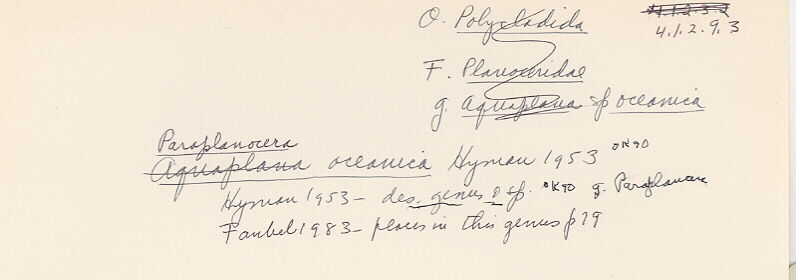 O. Polycladida
4.1.2.3.2
4.1.2.9.3
F. Planoceridae
g. Aquaplana sp oceanica
Paraplanocera
Aquaplana oceanica Hyman 1953 OK90
Hyman 1953 – des. genus & sp. OK90 g. Paraplanocera
Faubel 1983 – places in this genus p19